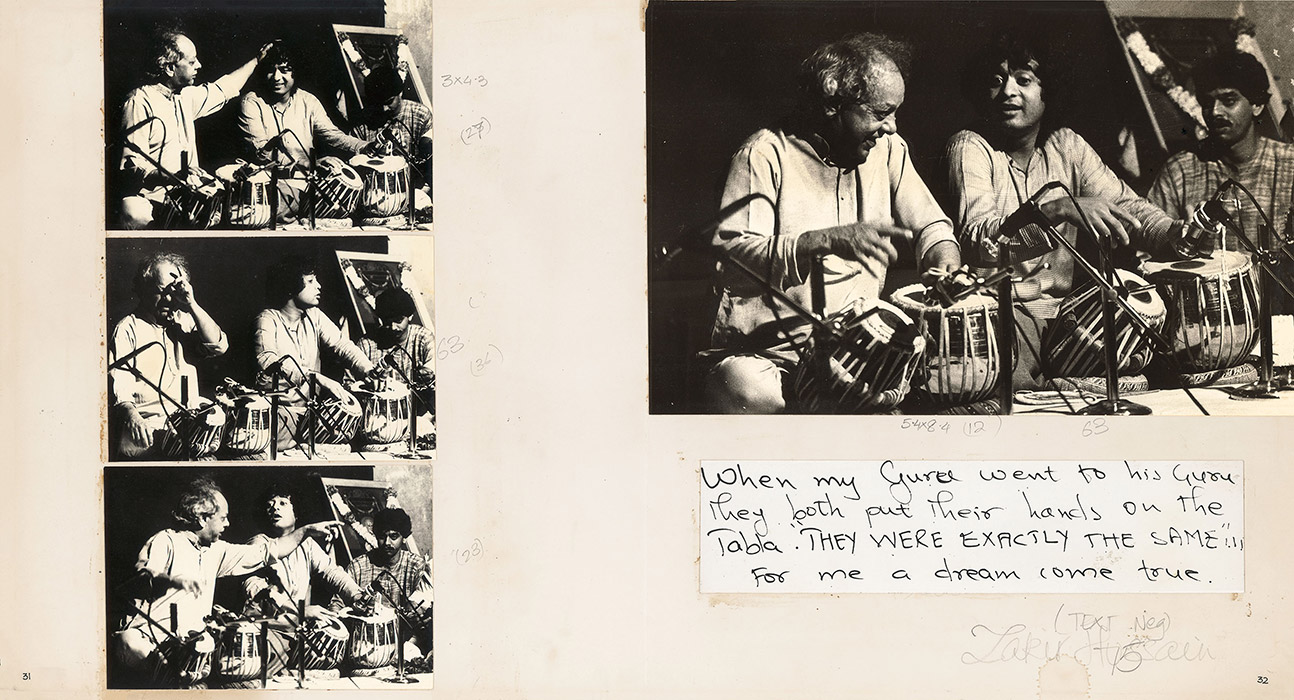 3×4·3
(27)
63
(36)
(23)
31
5·4×8·4 (12)
63
When my Guru went to his Guru
They both put Their hands on the
Tabla. "THEY WERE EXACTLY THE SAME"!!!
For me a dream come true.
(TEXT Neg)
Zakir Hussain
32